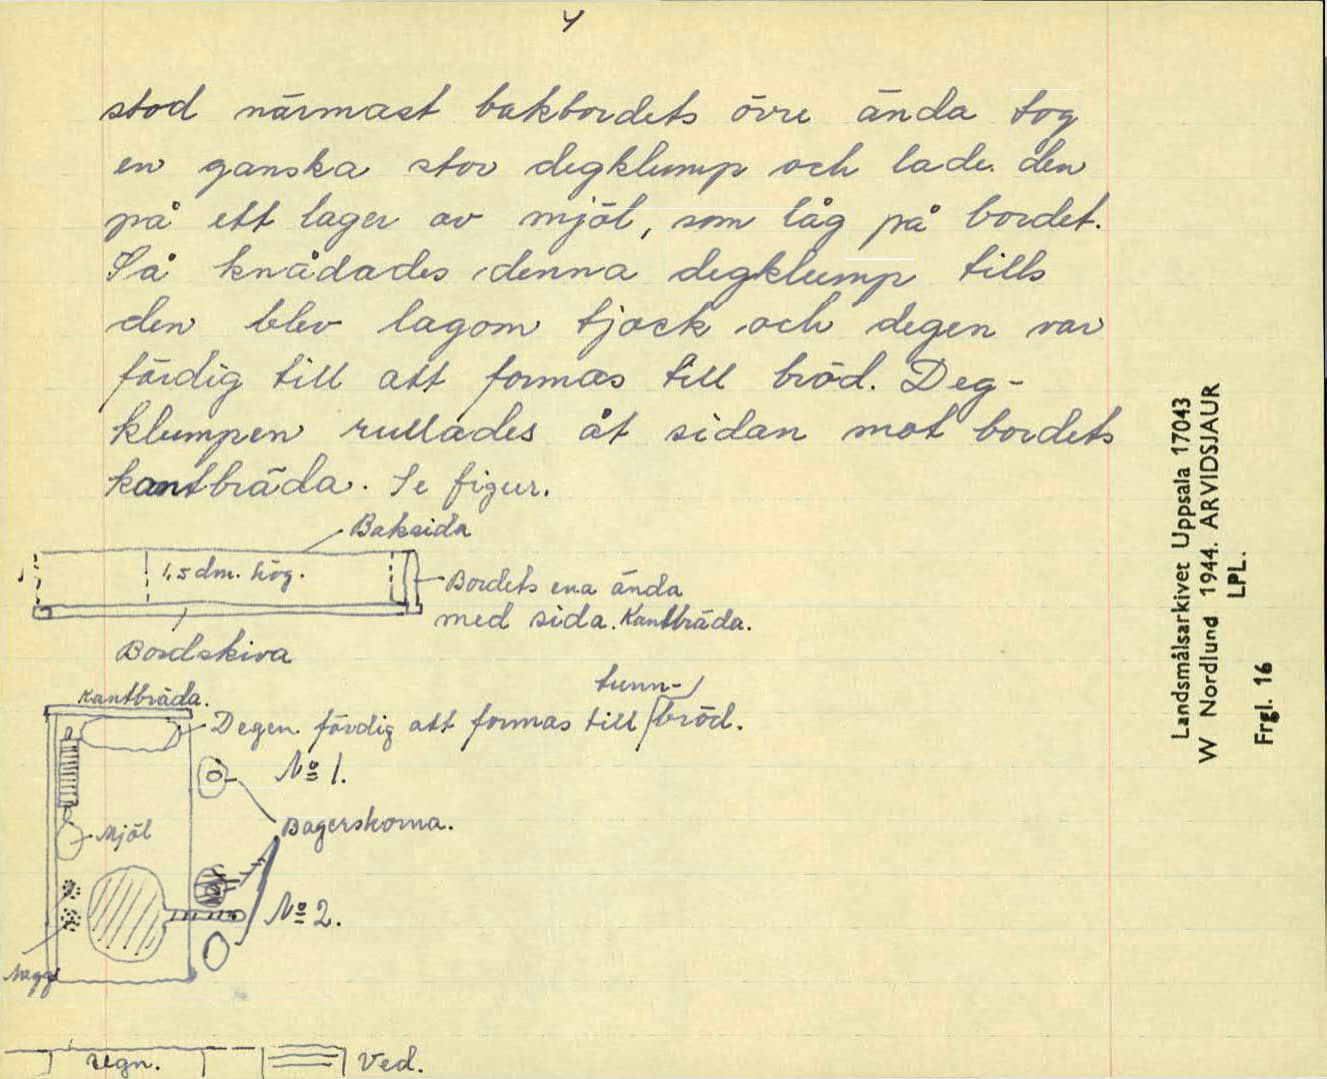 4
stod närmast bakbordets övre ända tog
en ganska stor degklump och lade den
på ett lager av mjöl, som låg på bordet.
Så knådades denna degklump tills
den blev lagom tjock och degen var
färdig till att formas till bröd. Deg-
klumpen rullades åt sidan mot bordets
kantbräda. Se figur.
Baksida
1,5 dm. hög.
Bordets ena ända
med sida. Kantbräda.
Bordskiva
tunn-
Kantbräda.
Degen färdig att formas till bröd.
No 1.
Mjöl
Bagerskorna.
No 2.
Nagg
ugn.
Ved.
Landsmålsarkivet Uppsala 17043
W Nordlund 1944. ARVIDSJAUR
LPL.
Frgl. 16